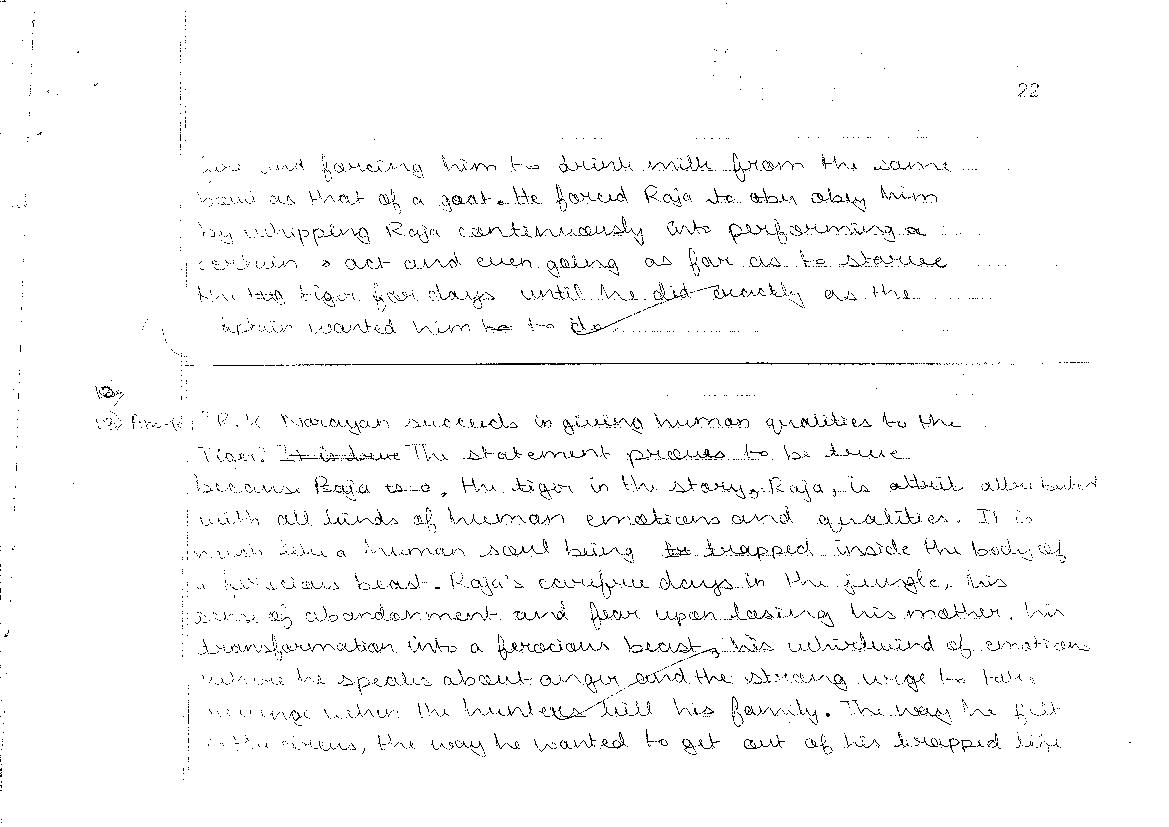 22
and forcing him to drink milk from the same
bowl as that of a goat. He forced Raja to obey obey him
by whipping Raja continuously into performing a
certain act and even going as far as to starve
the tiger for days until he did exactly as the
Captain wanted him to to do
10)
"R.K Narayan succeeds in giving human qualities to the
Tiger." It is true The statement proves to be true
because Raja is a, the tiger in the story, Raja, is attri attributed
with all kinds of human emotions and qualities. It is
much like a human soul being to trapped inside the body of
a ferocious beast. Raja's carefree days in the jungle, his
sense of abandonment and fear upon losing his mother, his
transformation into a ferocious beast, his whirlwind of emotions
where he speaks about anger and the strong urge to take
revenge when the hunters kill his family. The way he felt
in the circus, the way he wanted to get out of his trapped life